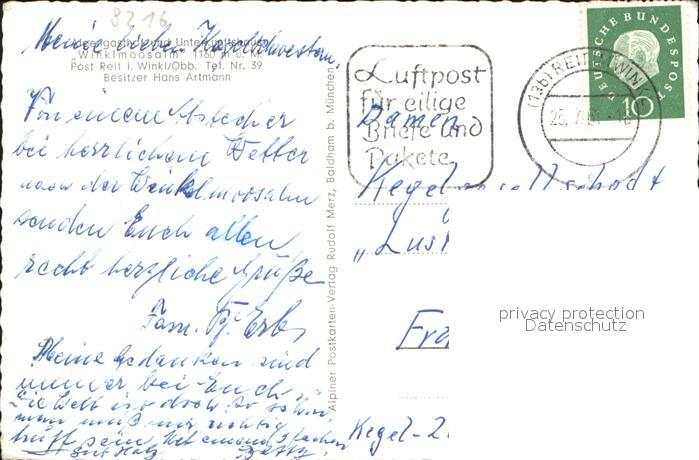 8216
Meine lieben Kegelschwestern.
Alpengasthof und Unterkunftshaus
„Winklmoosalm" 1160 m ü. M.
Post Reit i. Winkl/Obb. Tel. Nr. 39
Besitzer Hans Artmann
Von einem Abstecher
bei herrlichem Wetter
nach der Winkelmoosalm
senden Euch allen
recht herzliche Grüße
Fam. Erb,
Meine Gedanken sind
immer bei Euch.
Die Welt ist doch so schön
man muß nur richtig
Gut Holz Betty.
Alpiner Postkarten-Verlag Rudolf Merz, Baldham b. München
Luftpost
für eilige
Briefe und
Pakete
(13b) REIT I. WINKL
DEUTSCHE BUNDESPOST
10
Damen
Kegelgesellschaft
„Lust
Fra
Kegel-
privacy protection
Datenschutz